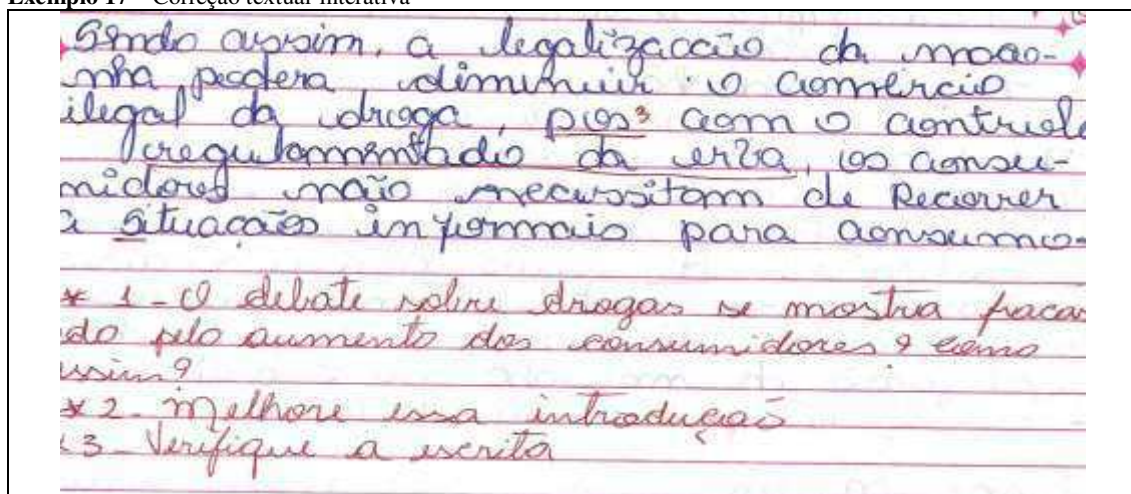 Exemplo 17 – Correção textual interativa
Sendo assim, a legalizaccão da maco-
nha podera diminuir o comércio
ilegal da droga, pos³ com o controle
regulamentado da erva, os consu-
midores não necessitam de Recorrer
a situacões informais para consumo.
* 1 - O debate sobre drogas se mostra fracas
do pelo aumento dos consumidores? como
assim?
* 2. Melhore essa introdução
* 3 - Verifique a escrita